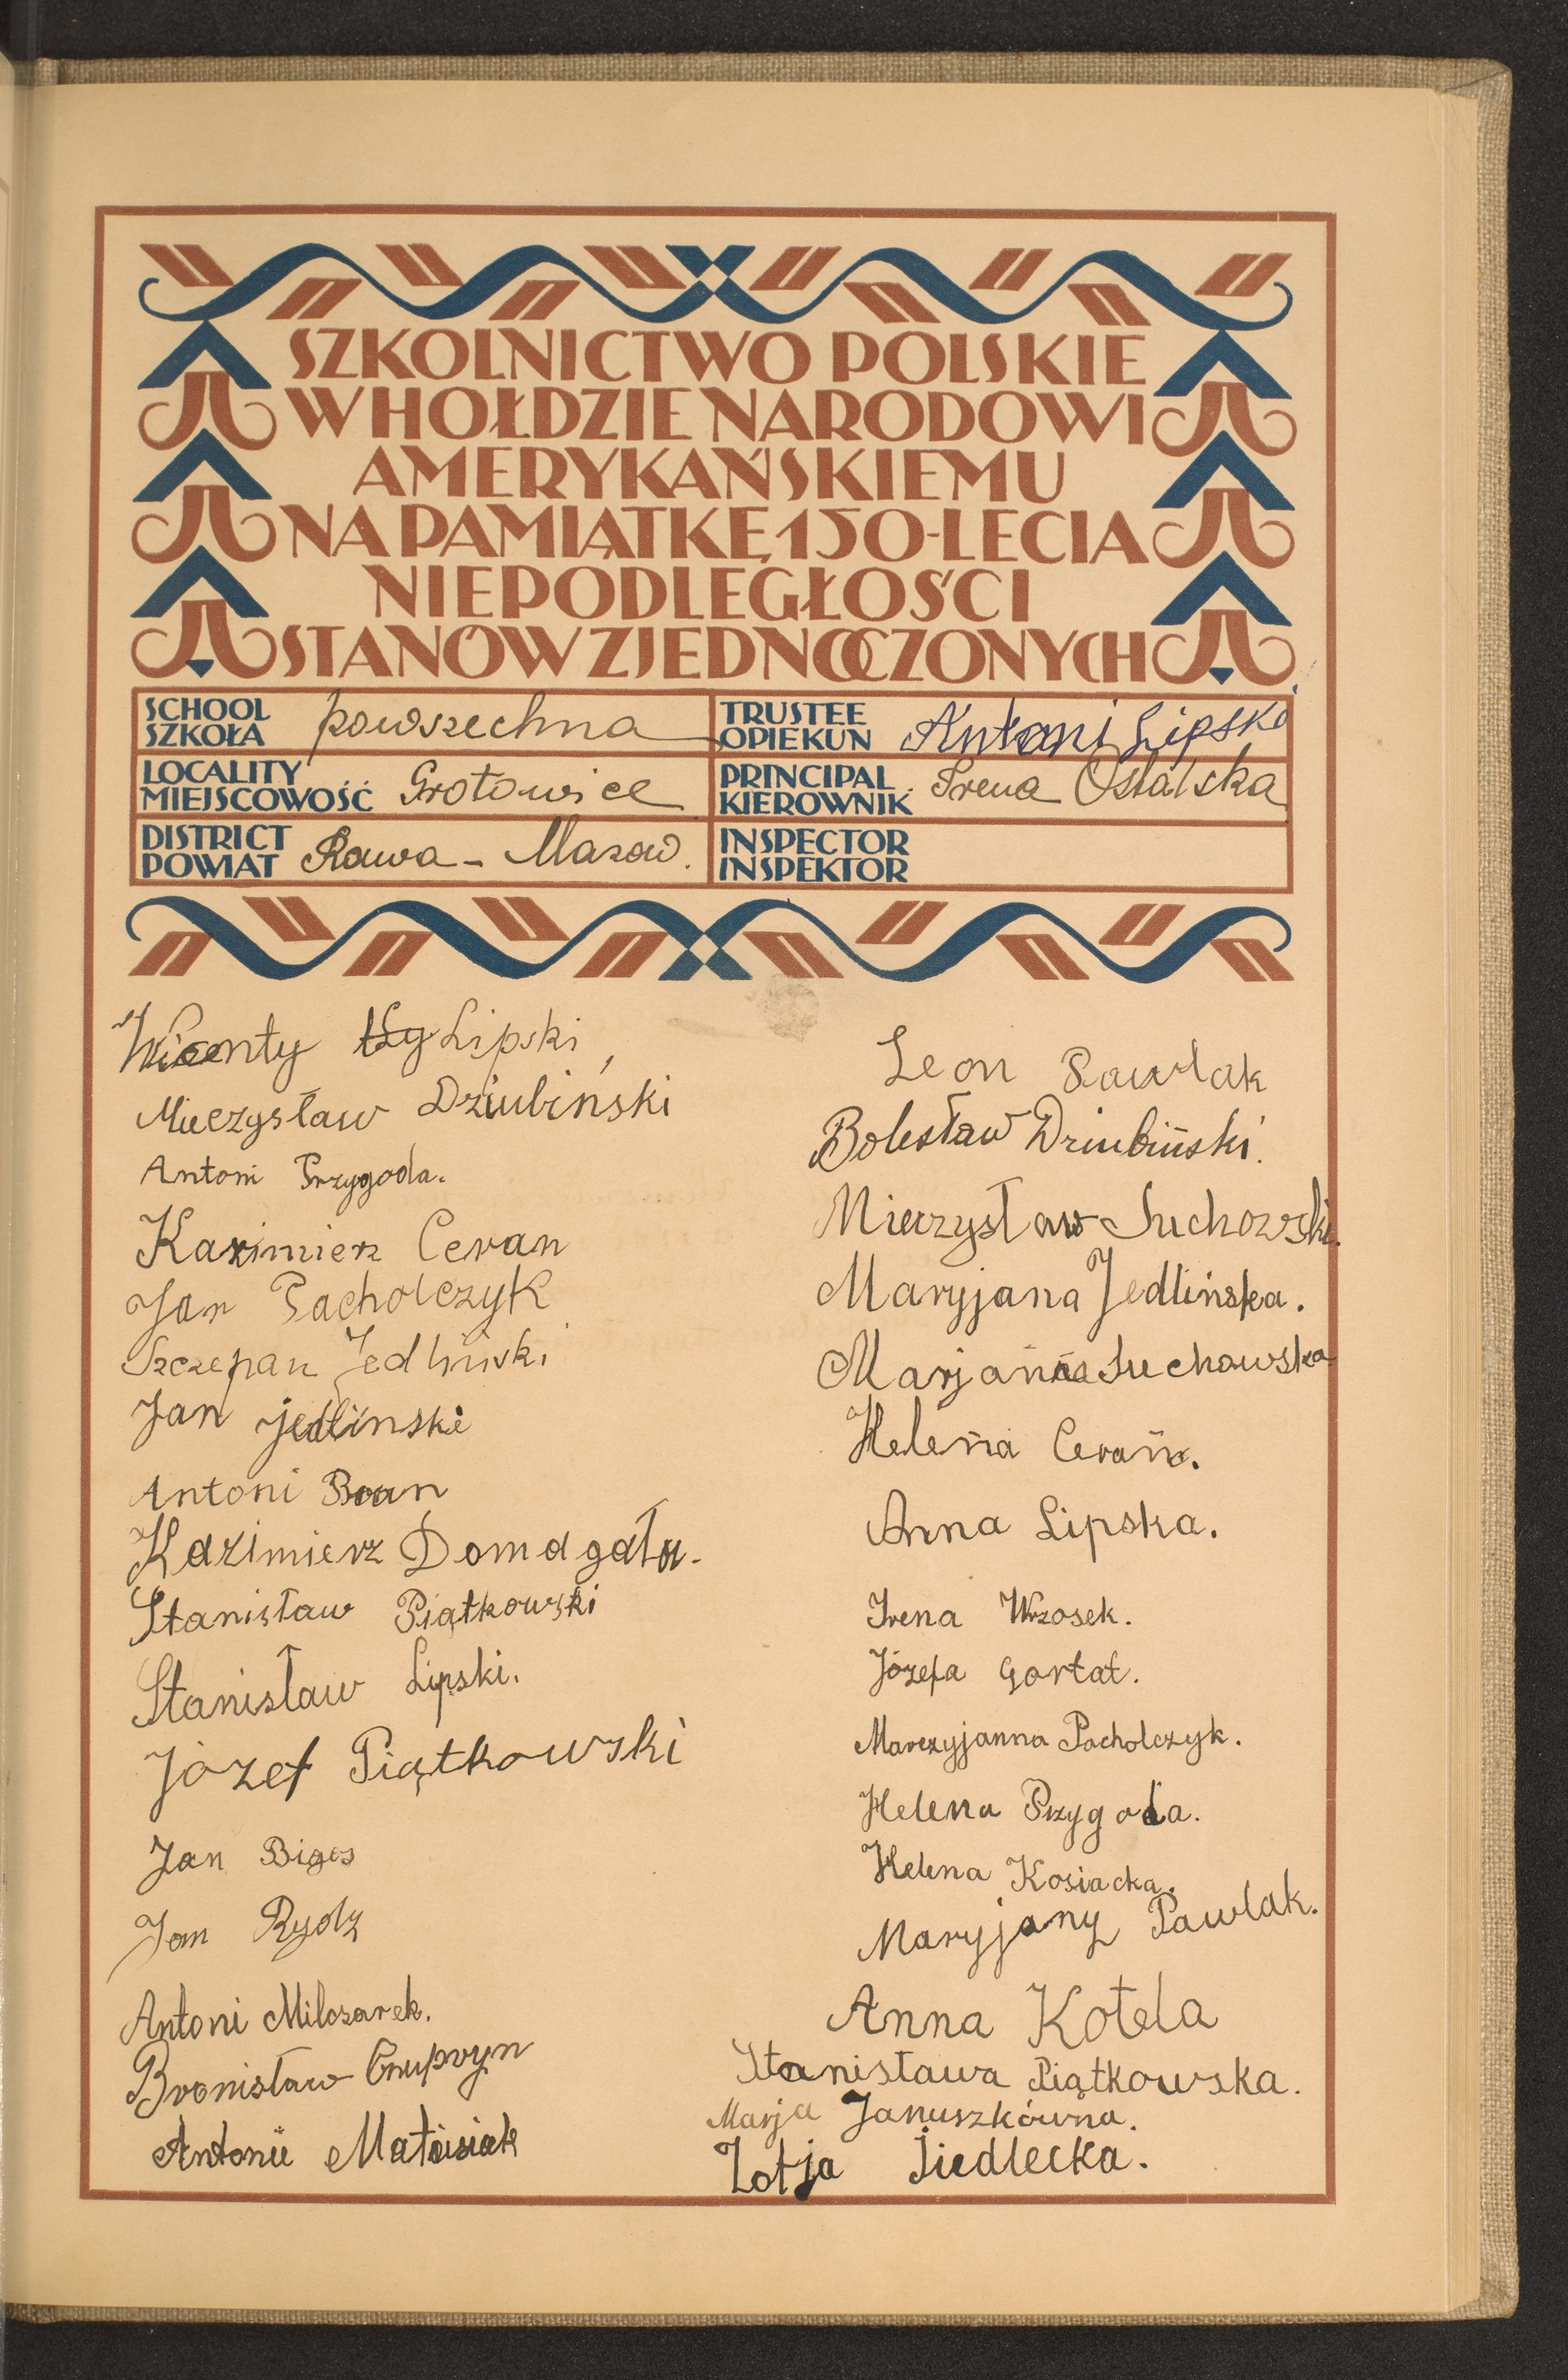 SZKOLNICTWO POLSKIE
W HOŁDZIE NARODOWI
AMERYKAŃSKIEMU
NA PAMIĄTKĘ 150-LECIA
NIEPODLEGŁOŚCI
STANÓW ZJEDNOCZONYCH
SCHOOL
SZKOŁA
powszechna
TRUSTEE
OPIEKUN
Antoni Lipski
LOCALITY
MIEJSCOWOŚĆ
Grotowice
PRINCIPAL
KIEROWNIK
Irena Ostalska
DISTRICT
POWIAT
Rawa - Mazow.
INSPECTOR
INSPEKTOR
Wicenty Lipski
Mieczysław Dziubiński
Antoni Przygoda.
Kazimierz Ceran
Jan Pacholczyk
Szczepan Jedliński
Jan Jedlinski
Antoni
Kazimierz Domagała.
Stanisław Piątkowski
Stanisław Lipski.
Józef Piątkowski
Jan Bigos
Jan Rydz
Antoni Milczarek.
Bronisław
Antonii Matusiak
Leon Pawlak
Bolesław Dziubiński.
Mieczysław Suchowski.
Maryjana Jedlińska.
Marjanna Suchowska
Helena Ceran.
Anna Lipska.
Irena Wrzosek.
Józefa Gortat.
Marczyjanna Pacholczyk.
Helena Przygoda.
Helena Kosiacka.
Maryjany Pawlak.
Anna Kotela
Stanisława Piątkowska.
Marja Januszkówna.
Zofja Siedlecka.